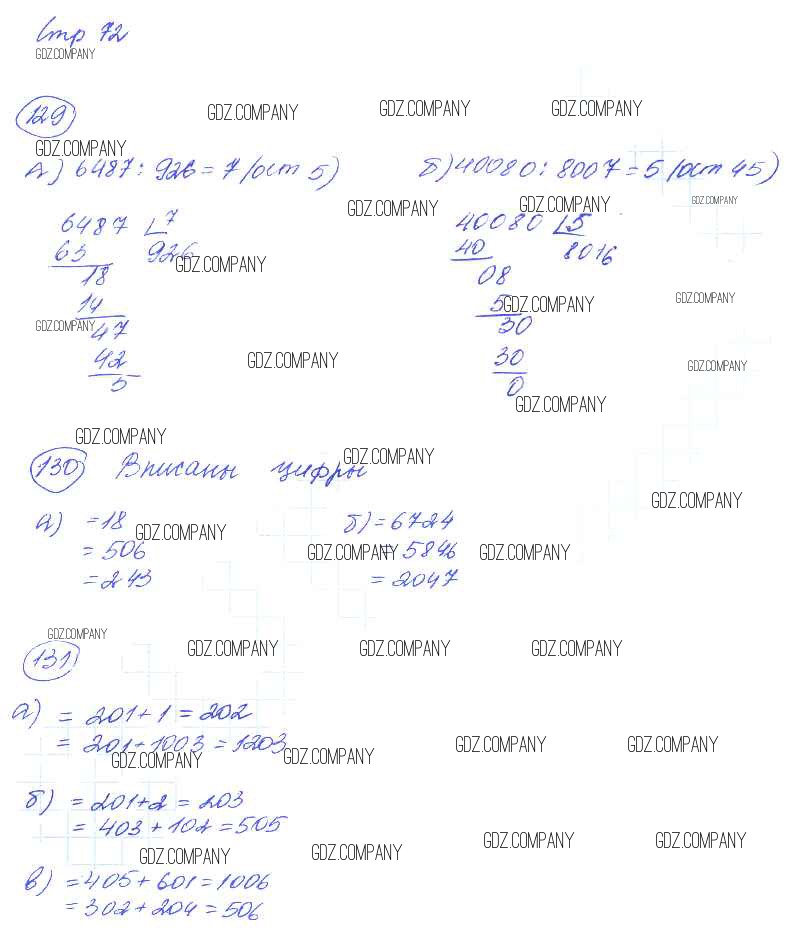 Стр 72
GDZ.COMPANY
129
GDZ.COMPANY GDZ.COMPANY GDZ.COMPANY
GDZ.COMPANY
А) 6487 : 926 = 7 (ост 5) б) 40080 : 8007 = 5 (ост 45)
GDZ.COMPANY GDZ.COMPANY GDZ.COMPANY
6487 7 40080 5
63 926 40 8016
GDZ.COMPANY
18 08
14 5 GDZ.COMPANY GDZ.COMPANY
GDZ.COMPANY 47 30
42 30
GDZ.COMPANY GDZ.COMPANY
5 0
GDZ.COMPANY
GDZ.COMPANY GDZ.COMPANY
130 Вписаны цифры
GDZ.COMPANY
а) = 18 б) = 6724
GDZ.COMPANY
= 506 = 5846
GDZ.COMPANY GDZ.COMPANY
= 243 = 2047
GDZ.COMPANY
131
GDZ.COMPANY GDZ.COMPANY GDZ.COMPANY
а) = 201 + 1 = 202
= 201 + 1003 = 1203
GDZ.COMPANY GDZ.COMPANY GDZ.COMPANY GDZ.COMPANY
б) = 201 + 2 = 203
= 403 + 102 = 505
GDZ.COMPANY GDZ.COMPANY GDZ.COMPANY GDZ.COMPANY
в) = 405 + 601 = 1006
= 302 + 204 = 506